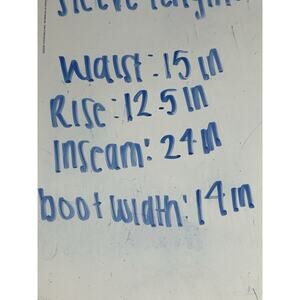 sleeve length:
Waist: 15 in
Rise: 12.5 in
Inseam: 24 in
boot width: 14 in